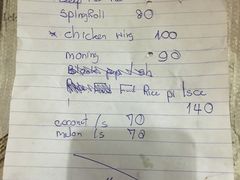 SpringRoll 80
* chicken wing 100
moning 90
Rice pi /sce
140
coconut /s 70
melon /s 70